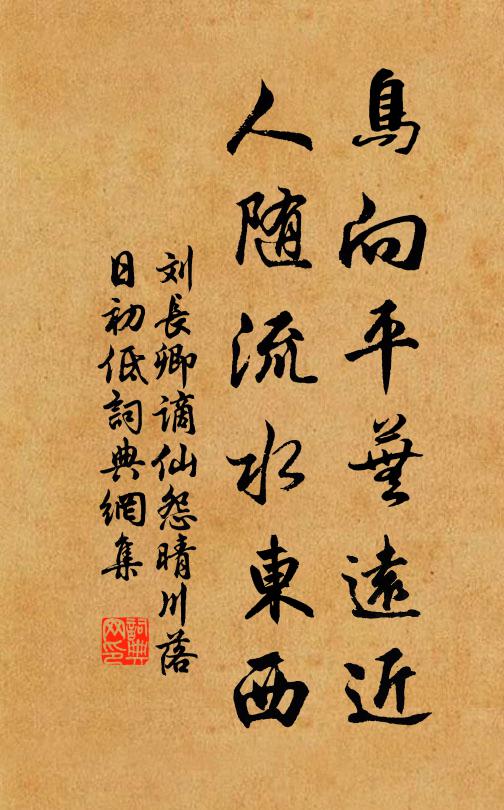 鳥向平蕪遠近
人随流水東西
刘長卿謫仙怨晴川落
日初低詞典網集
詞典网印